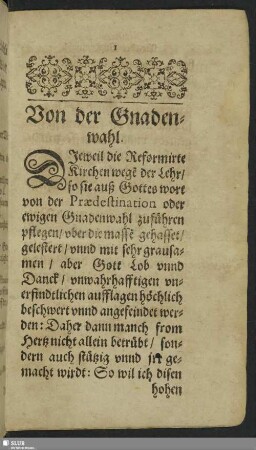 1
Von der Gnaden-
wahl.
DJeweil die Reformirte
Kirchen wegē der Lehr/
so sie auß Gottes wort
von der Prædestination oder
ewigen Gnadenwahl zuführen
pflegen/ vber die massē gehasset/
gelestert/ vnnd mit sehr grausa-
men/ aber Gott Lob vnnd
Danck/ vnwahrhafftigen vn-
erfindtlichen aufflagen höchlich
beschwert vnnd angefeindet wer-
den: Daher dann manch from
Hertz nicht allein betrübt/ son-
dern auch stützig vnnd jrr ge-
macht wirdt: So wil ich disen
hohen
SLUB